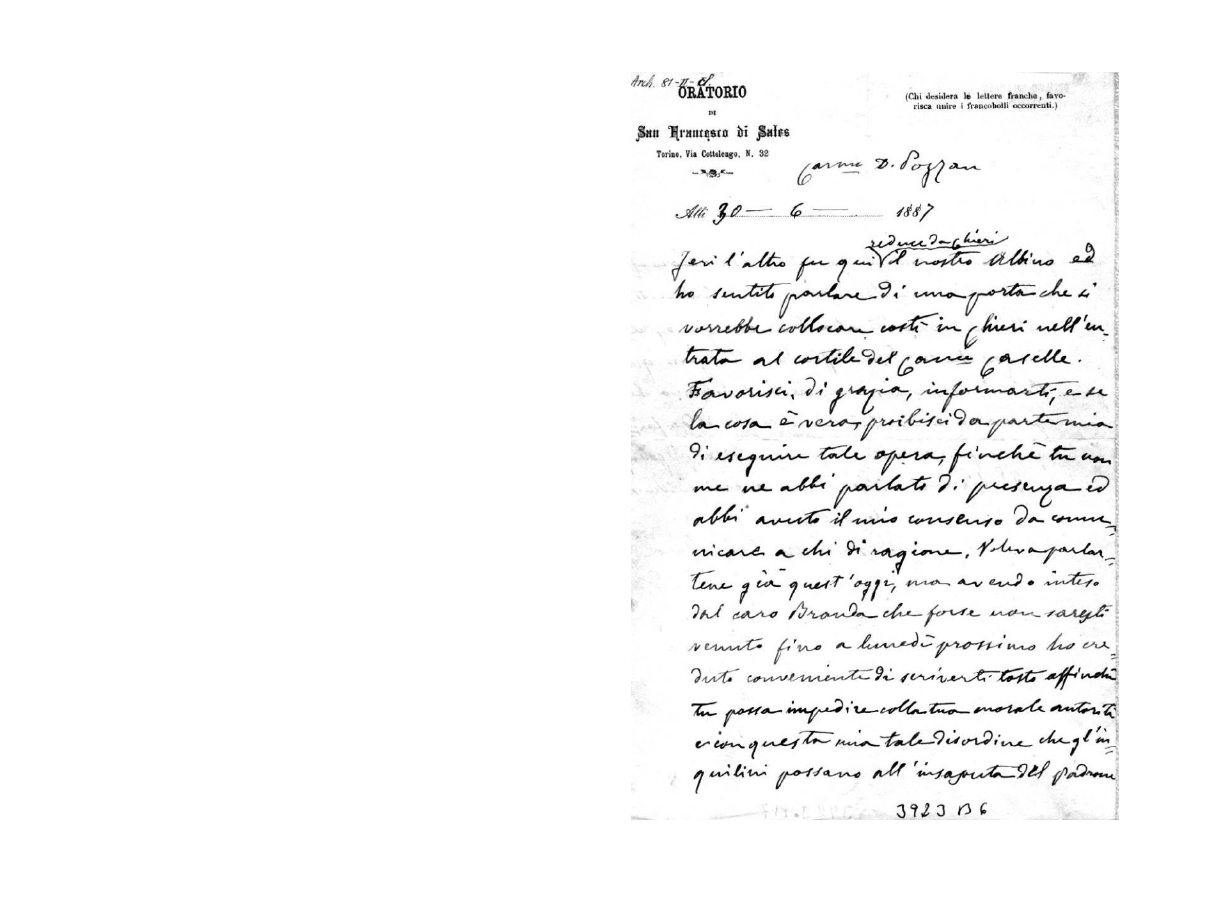 Arch. 81-II-
ORATORIO
DI
San Francesco di Sales
Torino, Via Cottolengo, N. 32
(Chi desidera le lettere franche, favo-
risca unire i francobolli occorrenti.)
Carmo D. Pozzan
Alli 30 — 6 — 1887
reduce da Chieri
Jeri l'altro fu qui il nostro Albino ed
ho sentito parlare di una porta che si
vorrebbe collocare costì in Chieri nell'en-
trata al cortile del Caselle.
Favorisci, di grazia, informarti, e se
la cosa è vera, proibisci da parte mia
di eseguire tale opera, finchè tu non
me ne abbi parlato di presenza ed
abbi avuto il mio consenso da comu=
nicare a chi di ragione. Voleva parlar=
tene già quest'oggi, ma avendo inteso
dal caro Branda che forse non saresti
venuto fino a lunedì prossimo ho cre=
duto conveniente di scriverti tosto affinchè
tu possa impedire colla tua morale autorità
e con questa mia tale disordine che gl'in=
quilini possano all'insaputa del padrone
3923 B 6